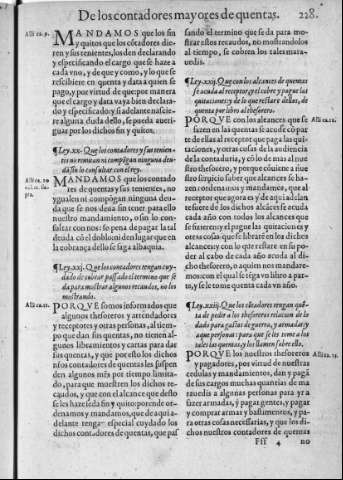 De los contadores mayores de quentas. 228.
Alli ca. 9.
MANDAMOS que los fin
y quitos que los cõtadores die-
ren y sus tenientes, los den declarando
y especificando el cargo que se haze a
cada vno, y de que y como, y lo que se
rescibiere en quenta y data a quien se
pago, y por virtud de que: por manera
que el cargo y data vaya bien declara-
do y especificado: y si adelante nascie-
re alguna duda dello, se pueda averi-
guar por los dichos fin y quito.
¶Ley. xx. Que los contadores y sus tenien-
tes no remitan ni compõgan ninguna deu-
da sin lo consultar con el rey.
MANDAMOS que los contado
res de quentas y sus tenientes, no
ygualen ni compõgan ninguna deu-
da que se nos deva sin tener para ello
nuestro mandamiento, o sin lo con-
sultar con nos: so pena de pagar la tal
deuda cõ el doblo: en den lugar que en
la cobrança dello se faga albaquia.
¶Ley. xxj. Que los contadores tengan cuy-
dado de cobrar passado el termino que se
da para mostrar algunos recaudos, no los
mostrando.
Alli ca. 11.
PORQVE somos informados que
algunos thesoreros y arrendadores
y receptores y otras personas, al tiem-
po que dan sus quentas, no tienen al-
gunos libramientos y cartas para dar
sus quentas, y que por esto los dichos
nros contadores de quentas les suspen
den algunos mrs por tiempo limita-
do, para que muestren los dichos re-
caudos, y que con el alcance que desto
se les haze se da fin y quito: porende or-
denamos y mandamos, que de aqui a-
delante tengan especial cuydado los
dichos contadores de quentas, que pas
sando el termino que se da para mo-
strar estos recaudos, no mostrandolos
al tiempo, se cobren los tales mara-
uedis.
¶Ley. xxij. Que con los alcances de quentas
se acuda al receptor q̃ el cobre y pague las
quitaciones: y de lo que restare dellas, de
quenta por libro al thesorero.
Alli ca. 12.
PORQVE con los alcances que se
fazen en las quentas se acude cõ par
te dellas al receptor que paga las qui-
taciones, y otras cosas de la audiencia
de la contaduria, y cõ lo de mas al nue
stro thesorero, y porque cõuiene a nue
stro seruicio saber que alcances se ha-
zen: ordenamos y mandamos, que al
receptor que agora es y de aqui adelan
te fuere de los dichos alcãces se acuda
cada año con todos los alcances que
se fizieren: y el pague las quitaciones y
otras cosas que se libraren en los dichos
alcances: y con lo que restare en su po-
der al cabo de cada año acuda al di-
cho thesorero, o a quien nos mandare-
mos: con el qual se tenga vn libro a par-
te, y se le tome quenta cada vn año.
¶Ley. xxiij. Que los cõtadores tengan quẽ-
ta de pedir a los thesoreros relacion de lo
dado para gastos de guerra, y armadas y a
que personas: para que se les tome a los
tales las quentas y los llamen sobre ello.
Alli ca. 13.
PORQVE los nuestros thesoreros
y pagadores, por virtud de nuestras
cedulas y mandamientos, dan y pagã
de sus cargos muchas quantias de ma
rauedis a algunas personas para yr a
fazer armadas, y pagar gentes, y pagar
y comprar armas y bastimentos, y pa-
ra otras cosas necessarias, y que los di-
chos nuestros contadores de quentas
Fff 4 no